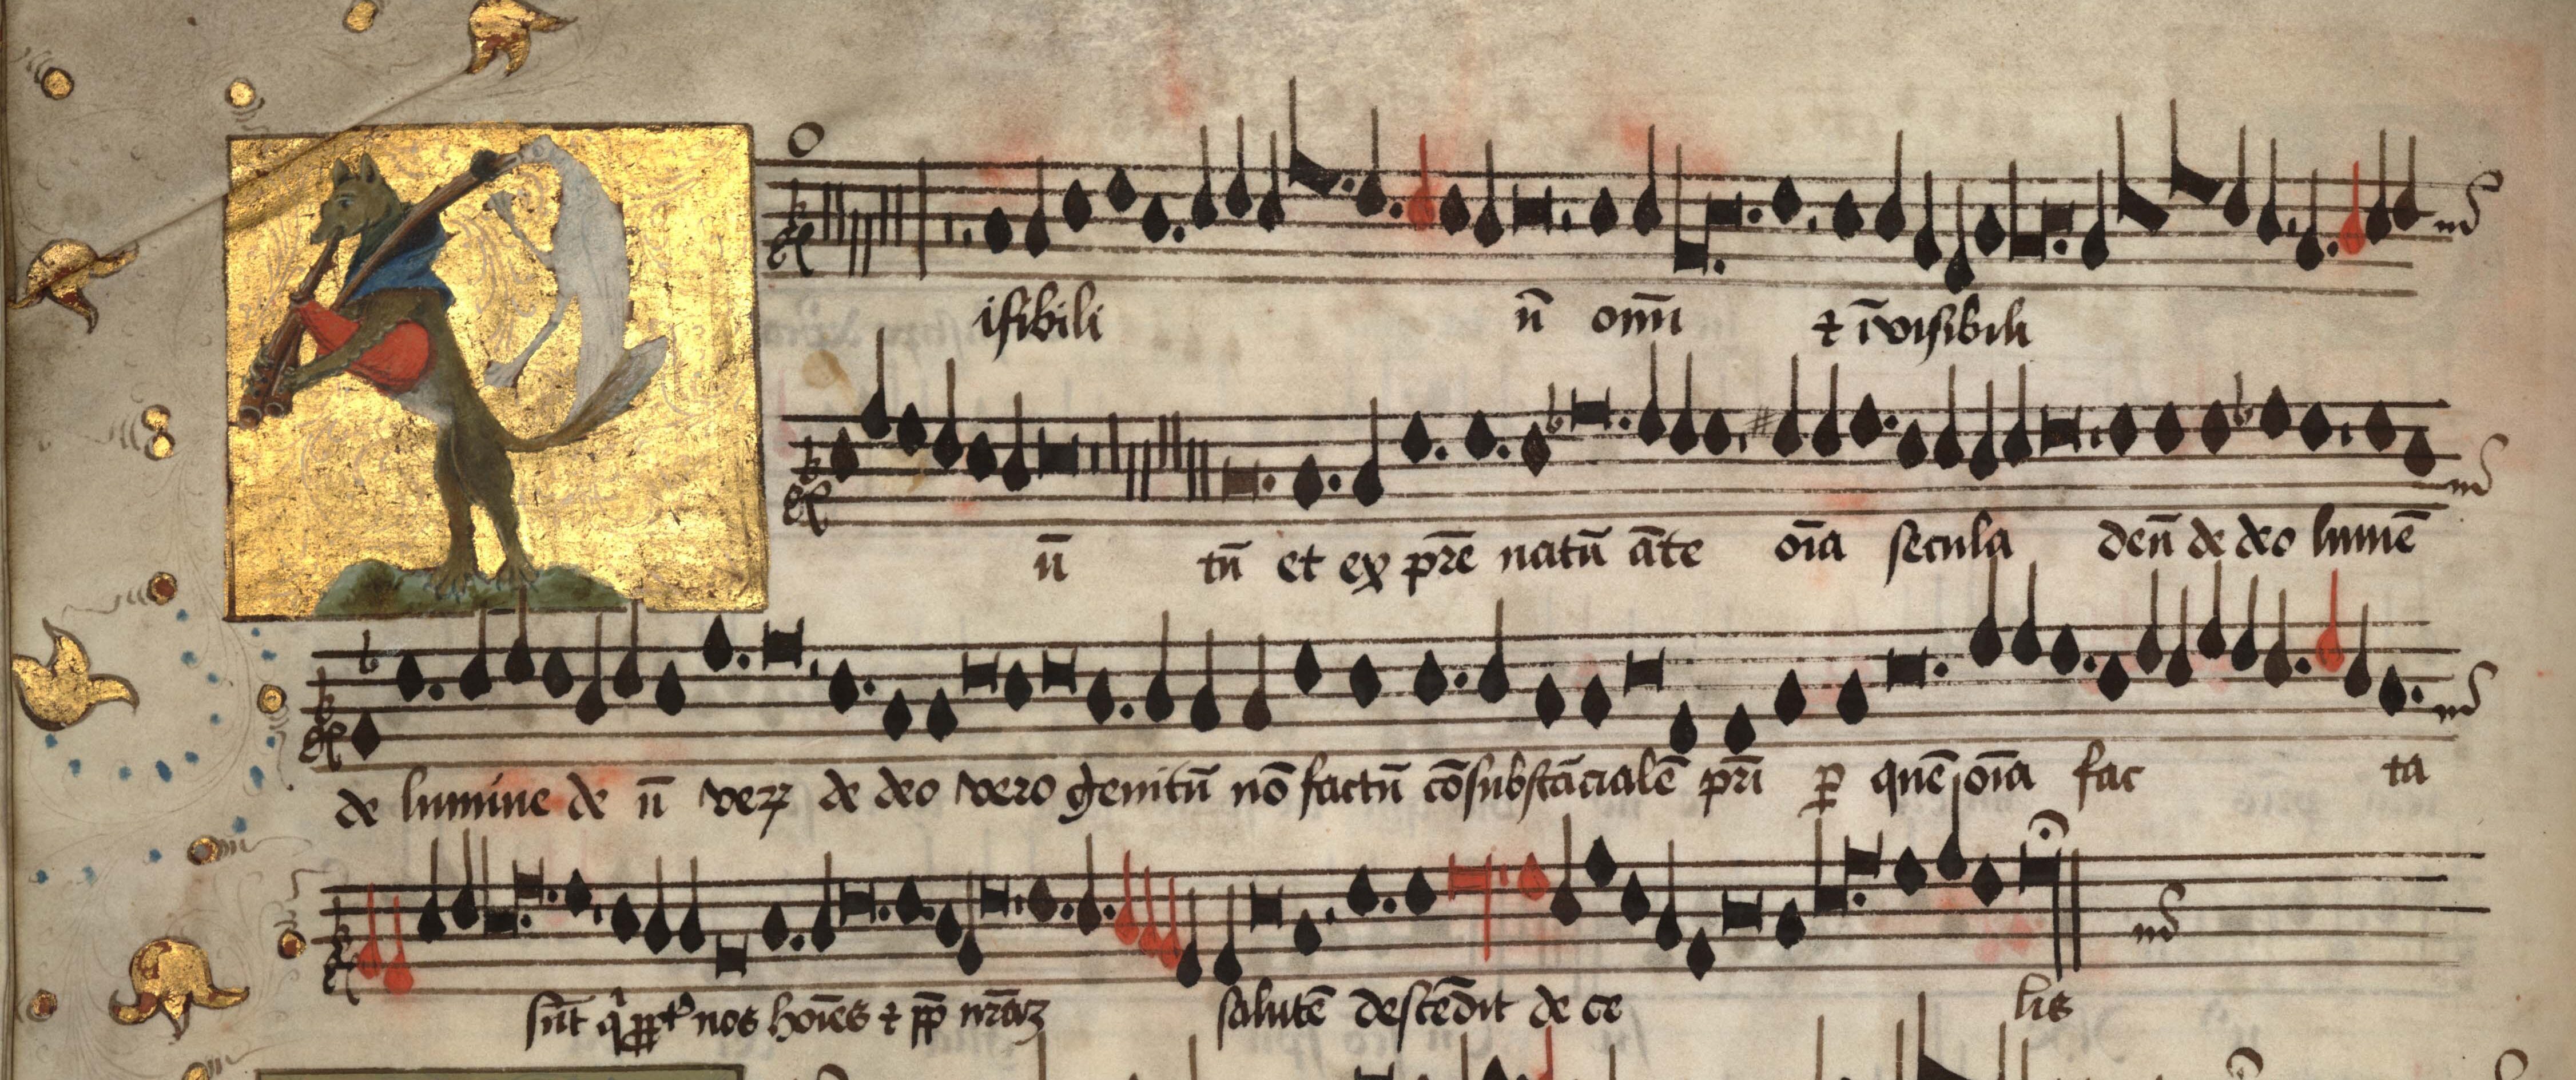 isibili n̄ om̄ı ⁊ īvisibili
n̄ tū et ex pr̄e natū ān̄te oīa secula deū de deo lumē
de lumine de n̄ veꝝ de deo vero genitū nō factū cōsubstācialē pr̄i ꝑ quē oīa fac ta
sūt nos hoīes ⁊ salutē descēdit de ce lis